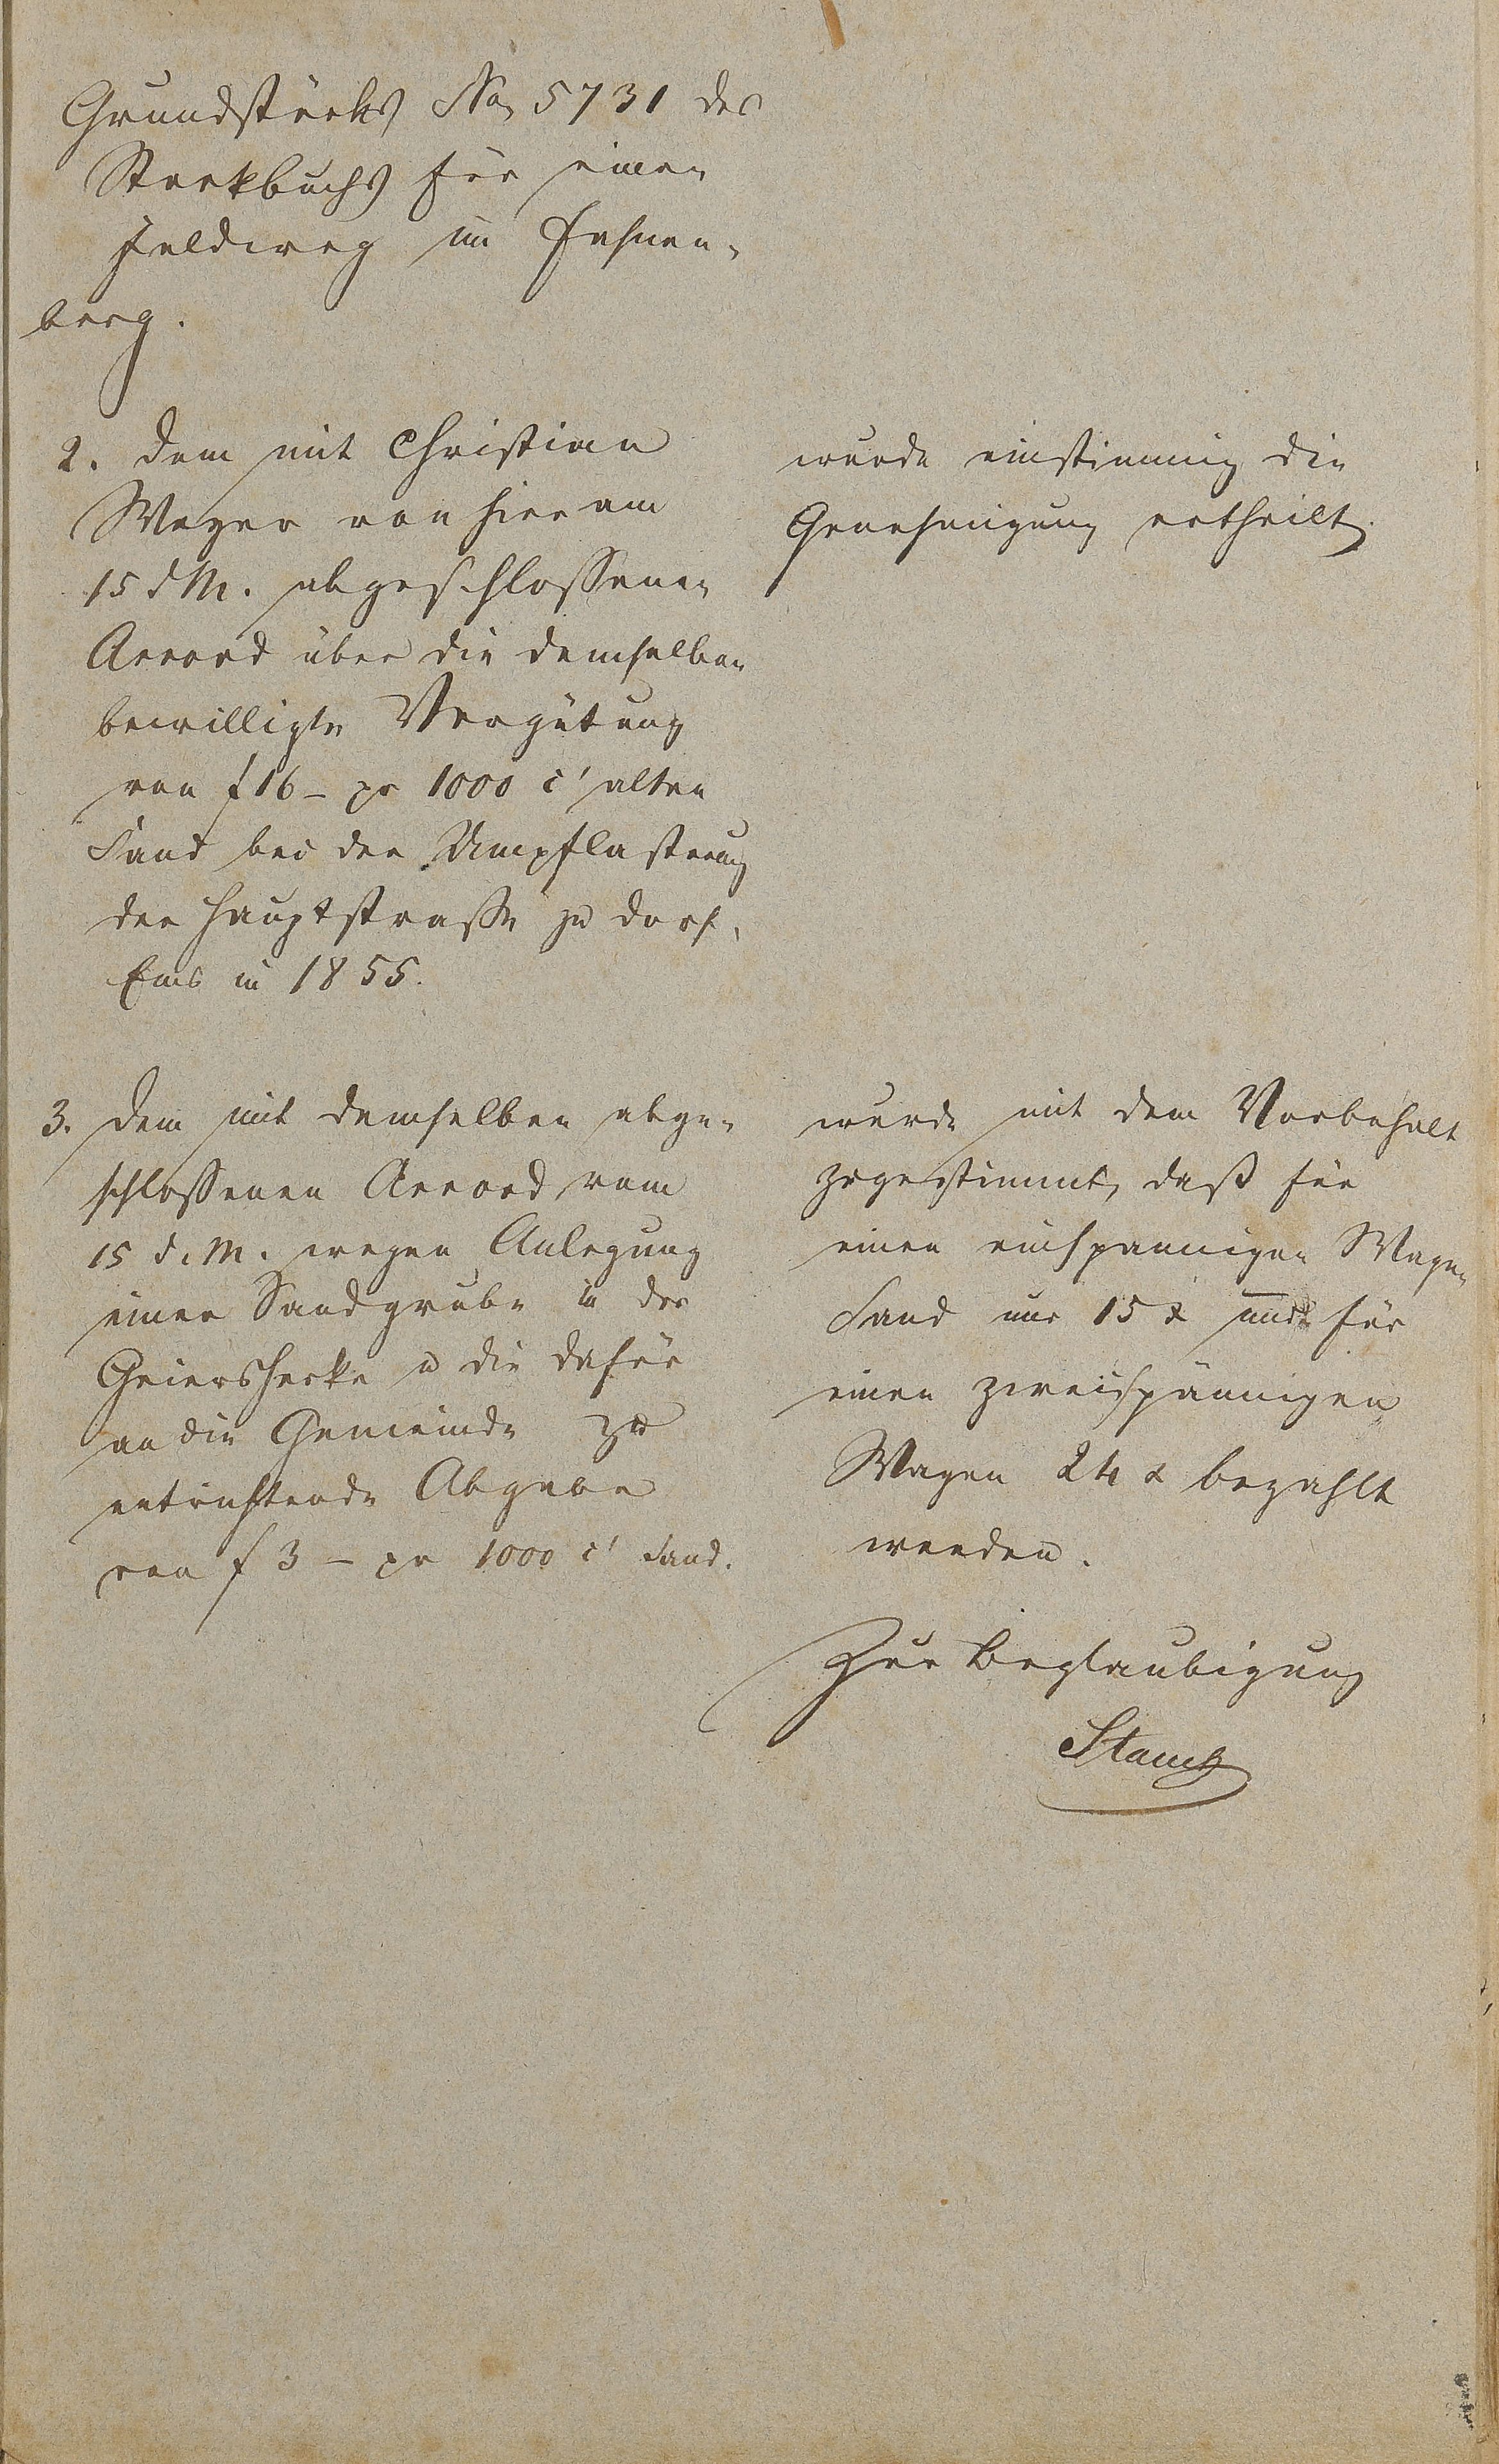 Grundstücks No 5731 des
Stockbuchs für einen
Feldweg im Hahnen-
berg.
2. dem mit Christian
Weyer von hier am
15 d M. abgeschlossenen
Accord über die demselben
bewilligte Vergütung
von f 16 – pr 1000 c' alten
Sand bei der Umpflasterung
der Hauptstraße zu Dorf-
Ems in 1855.
wurde einstimmig die
Genehmigung ertheilt.
3. dem mit demselben abge-
schlossenen Accord vom
15 d. M. wegen Anlegung
einer Sandgrube in der
Geiershecke u die dafür
an die Gemeinde zu
entrichtende Abgabe
von f 3 – pr 1000 c' Sand.
wurde mit dem Vorbehalt
zugestimmt, daß für
einen einspännigen Wagen
Sand nur 15 x und für
einen zweispännigen
Wagen 24 x bezahlt
werden.
Zur Beglaubigung